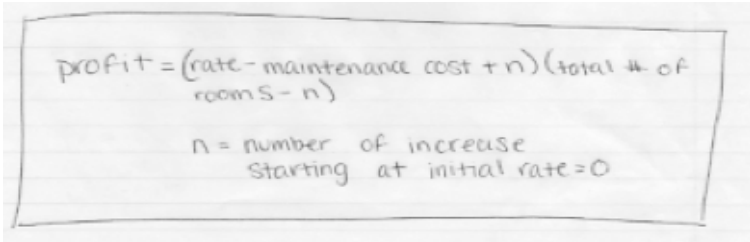 profit = (rate - maintenance cost + n)(total # of
rooms - n)
n = number of increase
starting at initial rate = 0